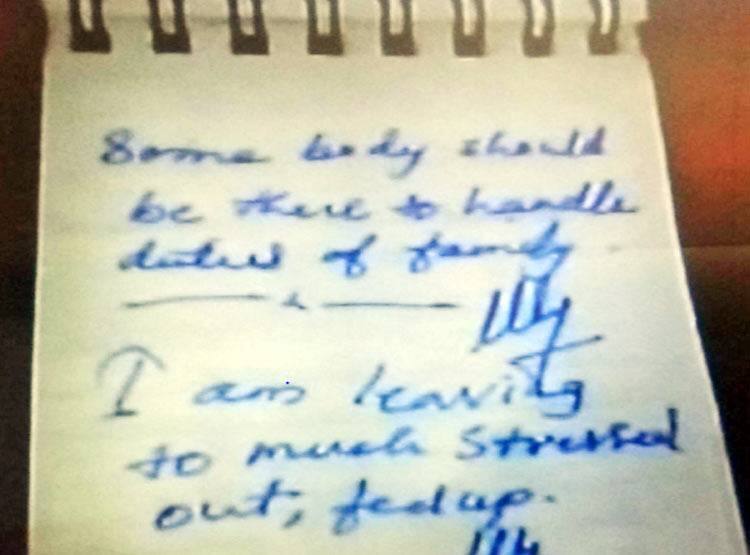 Some body should
be there to handle
duties of family
I am leaving
to much stressed
out, fed up.